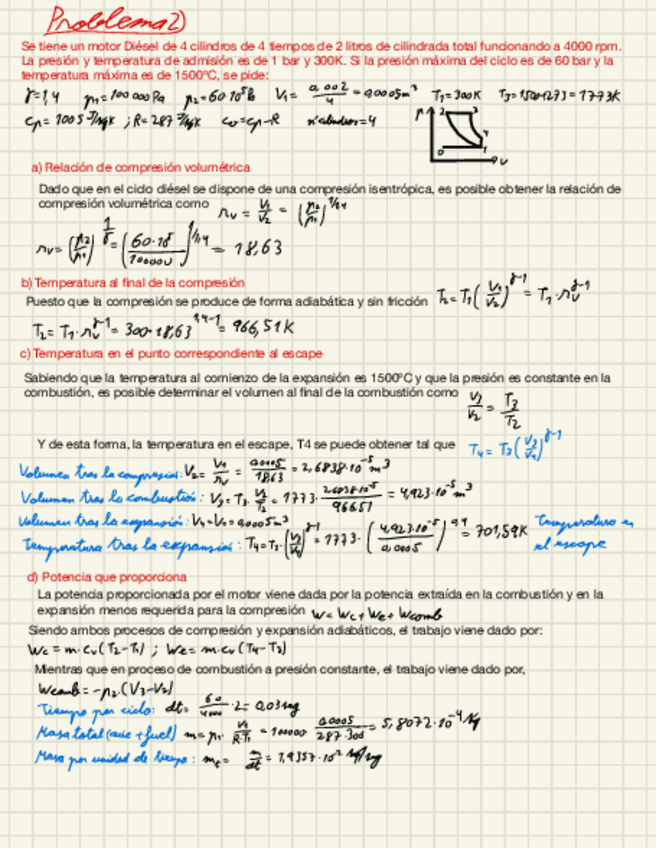 Problema 2)
Se tiene un motor Diésel de 4 cilindros de 4 tiempos de 2 litros de cilindrada total funcionando a 4000 rpm.
La presión y temperatura de admisión es de 1 bar y 300K. Si la presión máxima del ciclo es de 60 bar y la
temperatura máxima es de 1500ºC, se pide:
γ=1,4 p₁=100 000 Pa p₂=60·10⁵ Pa V₁= 0,002/4 = 0,0005m³ T₁=300K T₃=1500+273=1773K
cp= 1005 J/kgK ; R=287 J/kgK cv=cp-R nºcilindros=4
P 2 3 4 1 0 V
a) Relación de compresión volumétrica
Dado que en el ciclo diésel se dispone de una compresión isentrópica, es posible obtener la relación de
compresión volumétrica como rv = V₁/V₂ = (p₂/p₁)^1/γ
rv= (p₂/p₁)^1/γ = (60·10⁵/100000)^1/1,4 = 18,63
b) Temperatura al final de la compresión
Puesto que la compresión se produce de forma adiabática y sin fricción T₂=T₁(V₁/V₂)^γ-1 = T₁·rv^γ-1
T₂= T₁·rv^γ-1 = 300·18,63^1,4-1 = 966,51K
c) Temperatura en el punto correspondiente al escape
Sabiendo que la temperatura al comienzo de la expansión es 1500ºC y que la presión es constante en la
combustión, es posible determinar el volumen al final de la combustión como V₃/V₂ = T₃/T₂
Y de esta forma, la temperatura en el escape, T4 se puede obtener tal que T₄= T₃(V₃/V₄)^γ-1
Volumen tras la compresión: V₂= V₁/rv = 0,0005/18,63 = 2,6838·10⁻⁵ m³
Volumen tras la combustión: V₃= T₃·V₂/T₂ = 1773· 2,6838·10⁻⁵/966,51 = 4,923·10⁻⁵ m³
Volumen tras la expansión: V₄=V₁=0,0005m³
Temperatura tras la expansión: T₄=T₃·(V₃/V₄)^γ-1 = 1773·(4,923·10⁻⁵/0,0005)^0,4 = 701,59K Temperatura en
el escape
d) Potencia que proporciona
La potencia proporcionada por el motor viene dada por la potencia extraída en la combustión y en la
expansión menos requerida para la compresión W= Wc+We+Wcomb
Siendo ambos procesos de compresión y expansión adiabáticos, el trabajo viene dado por:
Wc = m·cv(T₂-T₁) ; We= m·cv(T₄-T₃)
Mientras que en proceso de combustión a presión constante, el trabajo viene dado por,
Wcomb= -p₂·(V₃-V₂)
Tiempo por ciclo: dt= 60/4000 ·2= 0,03seg
Masa total (aire+fuel) m= p₁· V₁/R·T₁ = 100000 0,0005/287·300 = 5,8072·10⁻⁴ kg
Masa por unidad de tiempo: mt= m/dt = 1,9357·10⁻² kg/seg